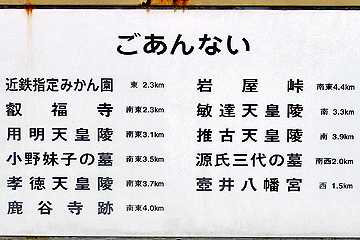 ごあんない
近鉄指定みかん園 東 2.3km
叡福寺 南東2.3km
用明天皇陵 南東3.1km
小野妹子の墓 南東3.5km
孝徳天皇陵 南東3.7km
鹿谷寺跡 南東4.0km
岩屋峠 南東4.4km
敏達天皇陵 南 3.3km
推古天皇陵 南 3.9km
源氏三代の墓 南西2.0km
壺井八幡宮 西 1.5km